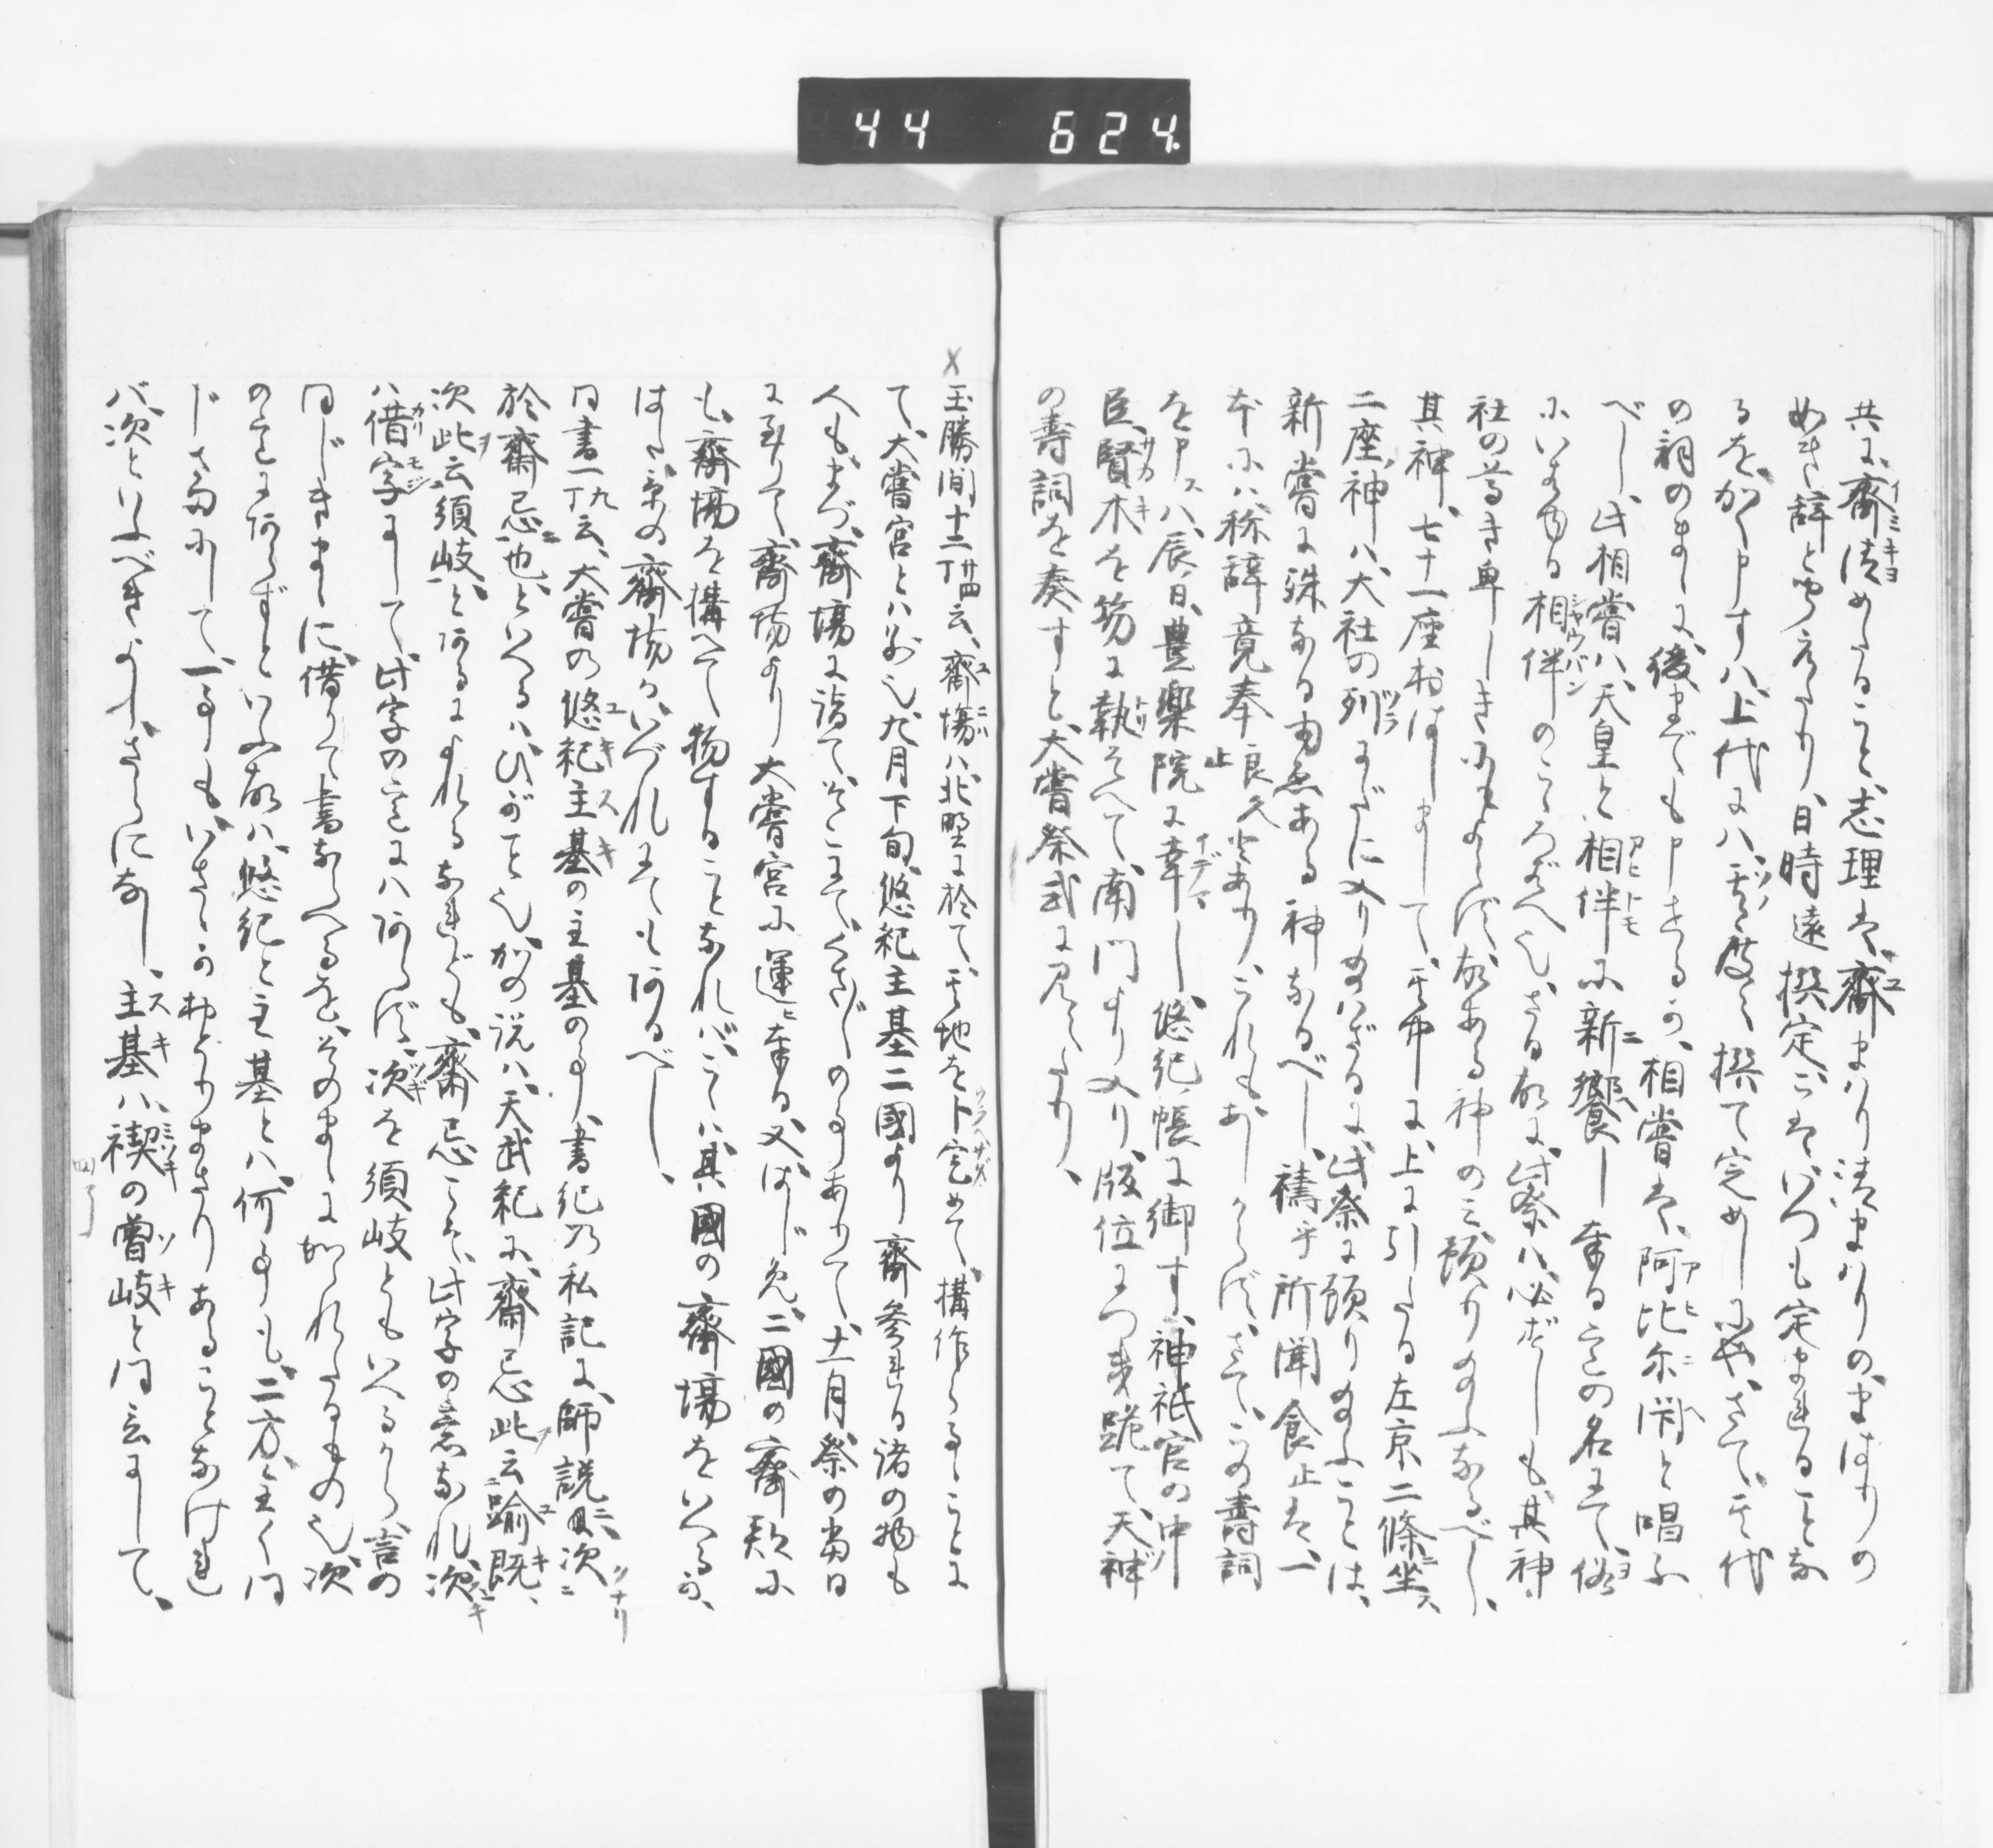 44 624.
共に、齋清めたること、志理は、齋まハり清まハりの、まはりの
めき辞と聞えたり、日時遠撰定ごは、いつも定まれることな
るを、かく申すハ、上代にハ、其度々撰て定めしにや、さて、其代
の詞のまゝに、後までも申せるか、相嘗は、阿比尓閇と唱ふ
べし、此相嘗ハ、天皇と相伴に新饗し奉る意の名にて、俗
にいはゆる相伴のこゝろばへ也、さる故に、此祭ハ、必ずしも、其神
社の尊き卑しきにもよらず、故ある神のミ預り給ふなるべし、
其神、七十一座おはしまして、其中に、上に引たる左京二條坐
二座神ハ、大社の列にだに入り給ハざるに、此祭に預り給ふことは、
新嘗に殊なる由縁ある神なるべし、禱乎所聞食止は、一
本にハ、称辞竟奉良久止とあり、これもあしからず、さて、この壽詞
を申スハ、辰日、豊樂院に幸し、悠紀帳に御す、神祇官の中
臣、賢木を笏に執そへて、南門より入り、版位につき跪て、天神
の壽詞を奏すと、大嘗祭式に見えたり、
玉勝間十二丁卅四云、齋場ハ、北野に於て、其地を卜定めて、構作らるゝことに
て、大嘗宮とハ別也、九月下旬、悠紀主基二國より齋参れる諸の物も
人も、まづ、齋場に詣て、そこにて、くさ〴〵の事ありて、十一月、祭の當日
に至りて、齋場より大嘗宮に運ヒ奉る、又、はじめ、二國の齋郡に
も、齋場を構へて物することなれば、こゝハ、其國の齋場をいへるか、
はた、京の齋場か、いづれにてもあるべし、
同書一丁九云、大嘗の悠紀主基の主基の事、書紀乃私記に、師説ニ、次
於齋忌也、といへるハ、ひがこと也、かの説ハ、天武紀に、齋忌此云踰既、
次此云須岐、とあるによれるなれども、齋忌こそ、此字の意なれ、次
ハ借字にして、此字の意にハあらず、次を須岐ともいへるから、言の
同じきまゝに、借りて書なへるを、そのまゝに加へられたるもの也、次
の意にあらずといふ故ハ、悠紀と主基とハ、何事も、二方全く同
じさまにして、一事も、いさゝかおとりまさりあることなけれ
バ、次といふべきよし、さらになし、主基ハ、禊の曽岐と同言にして、
四